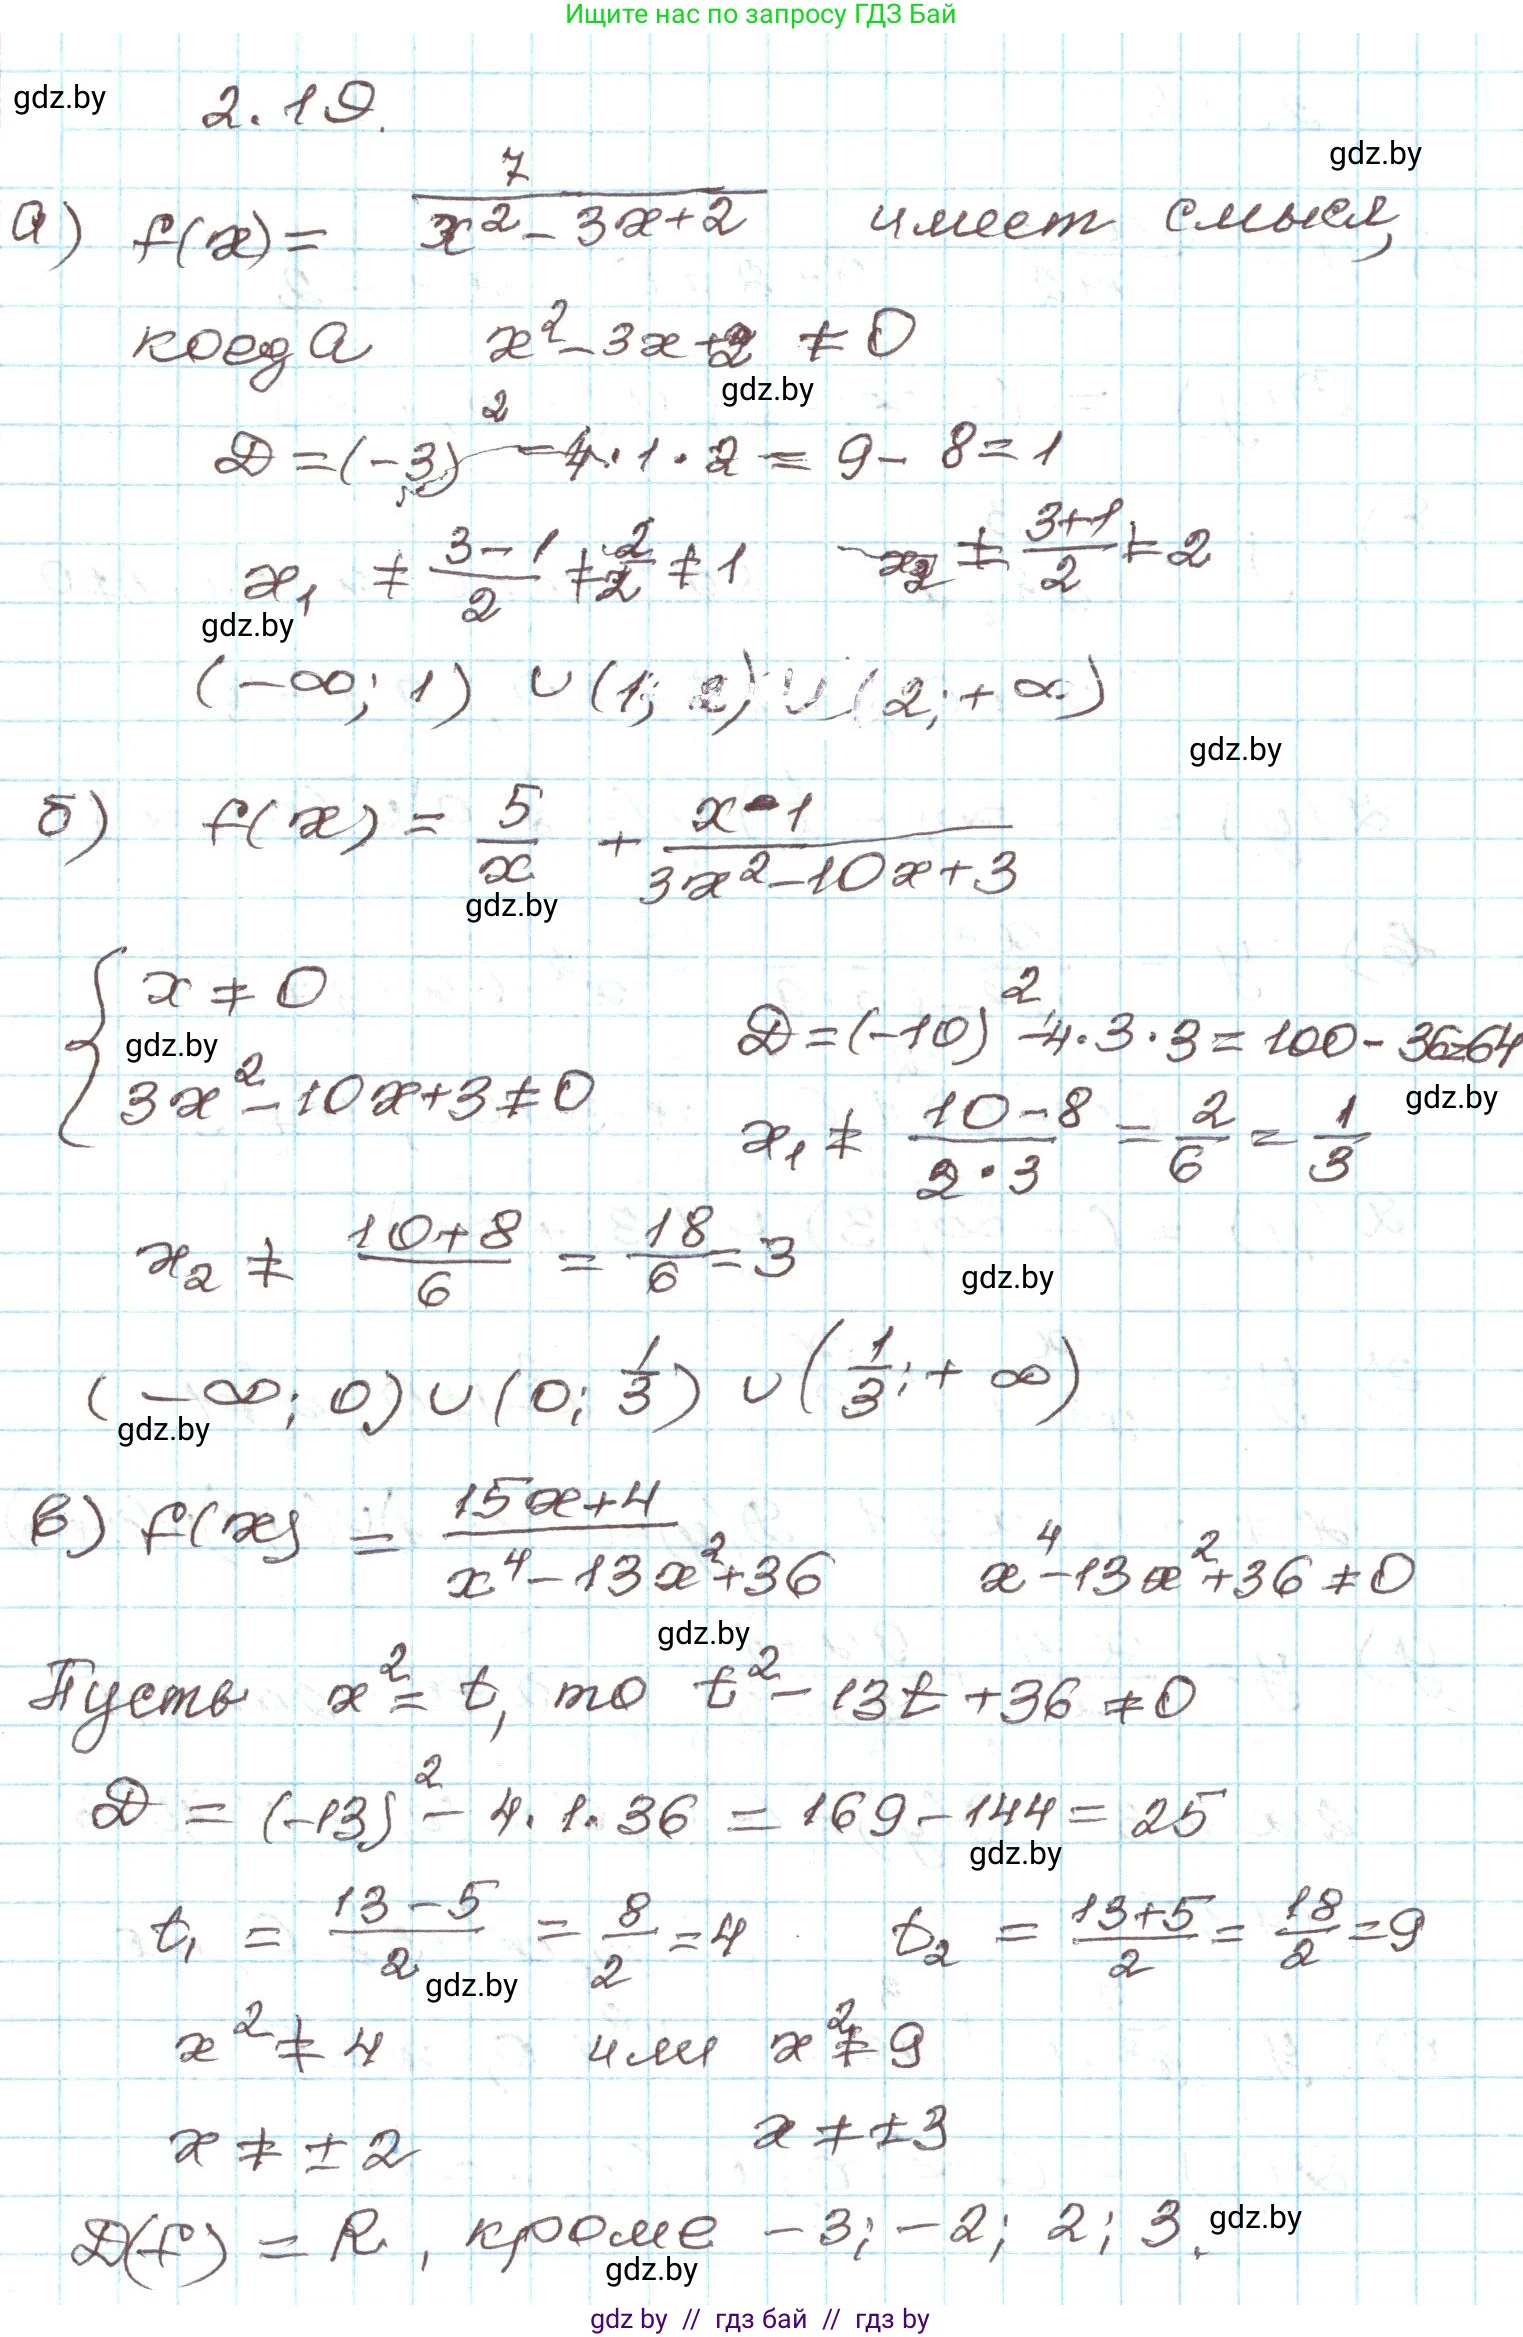 Ищите нас по запросу ГДЗ Бай
gdz.by
2.19.
gdz.by
а) f(x) = 7/(x² - 3x + 2) имеет смысл,
когда x² - 3x + 2 ≠ 0
gdz.by
D = (-3)² - 4·1·2 = 9 - 8 = 1
x₁ ≠ (3-1)/2 ≠ 2/2 ≠ 1 x₂ ≠ (3+1)/2 ≠ 2
gdz.by
(-∞; 1) ∪ (1; 2) ∪ (2; +∞)
gdz.by
б) f(x) = 5/x + (x-1)/(3x² - 10x + 3)
gdz.by
{ x ≠ 0
D = (-10)² - 4·3·3 = 100 - 36 = 64
gdz.by
3x² - 10x + 3 ≠ 0
gdz.by
x₁ ≠ (10-8)/(2·3) = 2/6 = 1/3
x₂ ≠ (10+8)/6 = 18/6 = 3
gdz.by
(-∞; 0) ∪ (0; 1/3) ∪ (1/3; +∞)
gdz.by
в) f(x) = (15x+4)/(x⁴ - 13x² + 36) x⁴ - 13x² + 36 ≠ 0
gdz.by
Пусть x² = t, то t² - 13t + 36 ≠ 0
D = (-13)² - 4·1·36 = 169 - 144 = 25
gdz.by
t₁ = (13-5)/2 = 8/2 = 4 t₂ = (13+5)/2 = 18/2 = 9
gdz.by
x² ≠ 4 или x² ≠ 9
x ≠ ±2 x ≠ ±3
D(f) = R, кроме -3; -2; 2; 3.
gdz.by
gdz.by
gdz by // гдз бай // гдз by